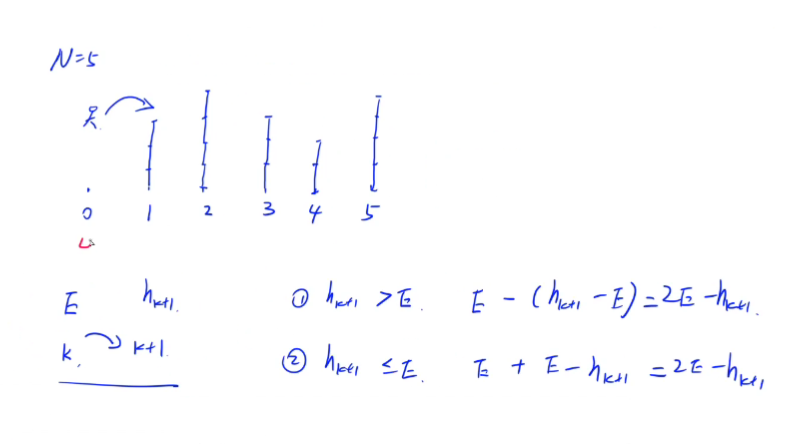 N=5
0 1 2 3 4 5
E h_{k+1}. ① h_{k+1} > E. E - (h_{k+1} - E) = 2E - h_{k+1}.
k. k+1. ② h_{k+1} ≤ E. E + E - h_{k+1} = 2E - h_{k+1}